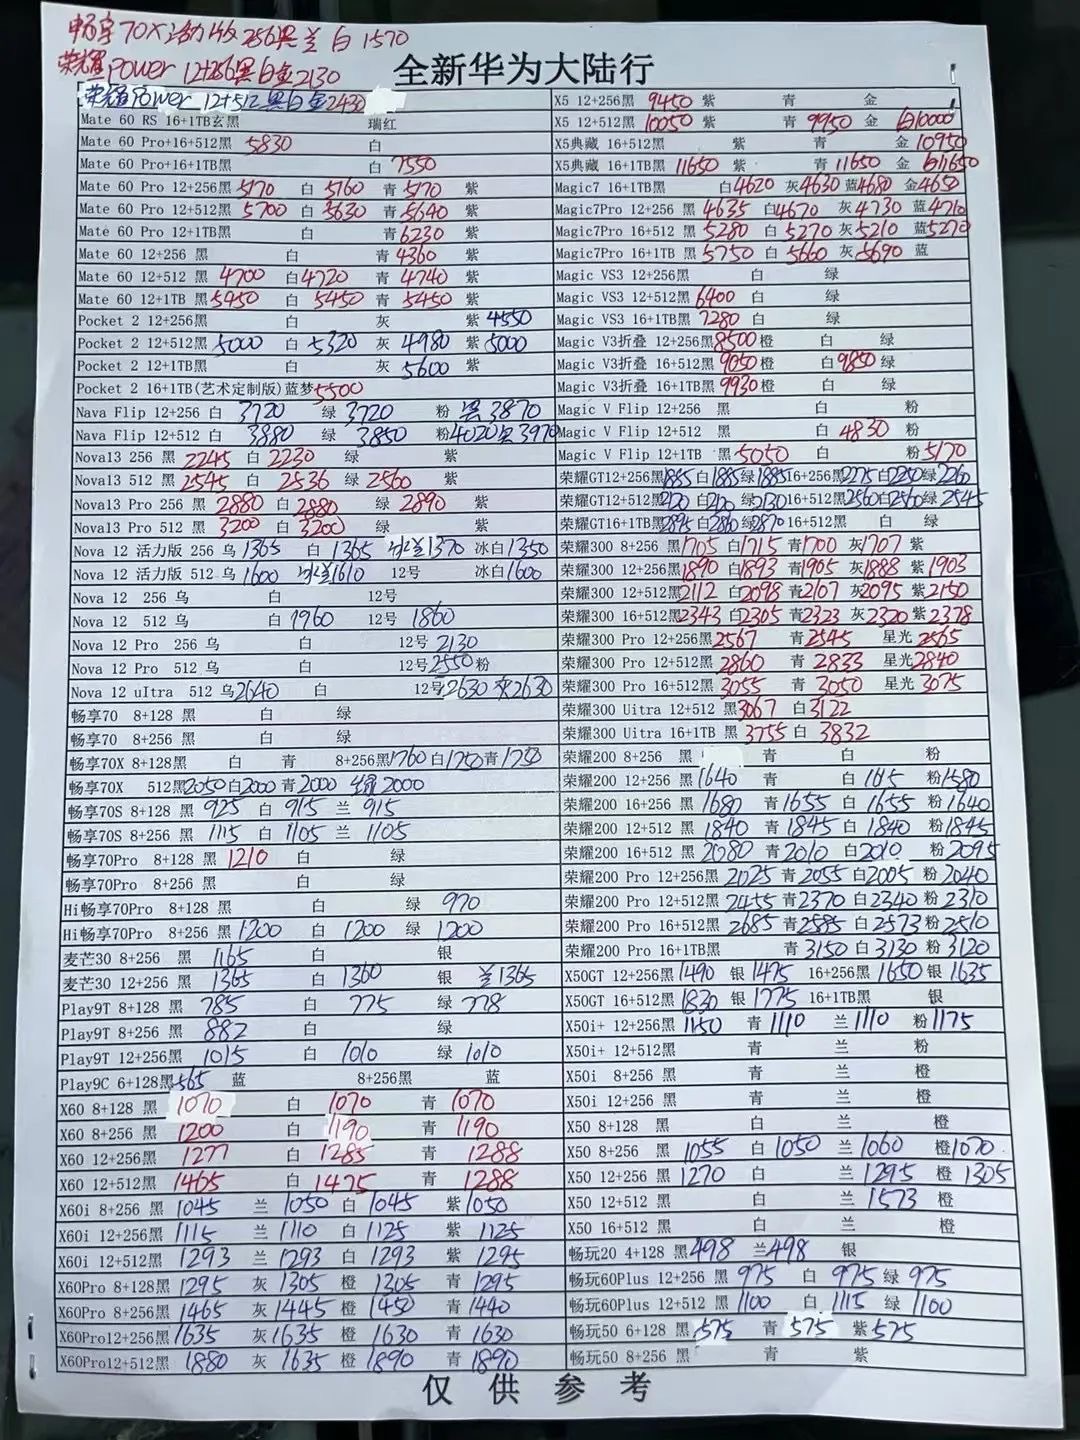 畅享70X活力版 256黑 兰 白 1570
荣耀Power 12+256黑白金2130
全新华为大陆行
荣耀Power 12+512黑白金2430
Mate 60 RS 16+1TB玄黑 瑞红
Mate 60 Pro+16+512黑 5830 白
Mate 60 Pro+16+1TB黑 白 7550
Mate 60 Pro 12+256黑 5170 白 5160 青 5170 紫
Mate 60 Pro 12+512黑 5700 白 5630 青 5640 紫
Mate 60 Pro 12+1TB黑 白 青 6230 紫
Mate 60 12+256 黑 白 青 4360 紫
Mate 60 12+512 黑 4700 白 4720 青 4740 紫
Mate 60 12+1TB 黑 5450 白 5450 青 5450 紫
Pocket 2 12+256黑 白 灰 紫 4550
Pocket 2 12+512黑 5000 白 5320 灰 4980 紫 5000
Pocket 2 12+1TB黑 白 灰 5600 紫
Pocket 2 16+1TB(艺术定制版)蓝梦 5500
Nava Flip 12+256 白 3720 绿 3720 粉 黑 3870
Nava Flip 12+512 白 3880 绿 3850 粉 4020 黑 3970
Nova13 256 黑 2245 白 2230 绿 紫
Nova13 512 黑 2545 白 2536 绿 2560 紫
Nova13 Pro 256 黑 2880 白 2880 绿 2890 紫
Nova13 Pro 512 黑 3200 白 3200 绿 紫
Nova 12 活力版 256 乌 1365 白 1365 冰兰1370 冰白1350
Nova 12 活力版 512 乌 1600 冰兰1610 12号 冰白1600
Nova 12 256 乌 白 12号
Nova 12 512 乌 白 1960 12号 1860
Nova 12 Pro 256 乌 白 12号 2130
Nova 12 Pro 512 乌 白 12号 2550 粉
Nova 12 uItra 512 乌 2640 白 12号 2630 灰2630
畅享70 8+128 黑 白 绿
畅享70 8+256 黑 白 绿
畅享70X 8+128黑 白 青 8+256黑1760 白1750 青1750
畅享70X 512黑2050 白2000 青2000 绿2000
畅享70S 8+128 黑 925 白 915 兰 915
畅享70S 8+256 黑 1115 白 1105 兰 1105
畅享70Pro 8+128 黑 1210 白 绿
畅享70Pro 8+256 黑 白 绿
Hi畅享70Pro 8+128 黑 白 绿 970
Hi畅享70Pro 8+256 黑 1200 白 1200 绿 1200
麦芒30 8+256 黑 1165 白 银
麦芒30 12+256 黑 1365 白 1360 银 兰1365
Play9T 8+128 黑 785 白 775 绿 778
Play9T 8+256 黑 882 白 绿
Play9T 12+256黑 1015 白 1010 绿 1010
Play9C 6+128黑 565 蓝 8+256黑 蓝
X60 8+128 黑 1070 白 1070 青 1070
X60 8+256 黑 1200 白 1190 青 1190
X60 12+256黑 1277 白 1285 青 1288
X60 12+512黑 1465 白 1475 青 1288
X60i 8+256 黑 1045 兰 1050 白 1045 紫 1050
X60i 12+256黑 1115 兰 1110 白 1125 紫 1125
X60i 12+512黑 1293 兰 1293 白 1293 紫 1295
X60Pro 8+128黑 1295 灰 1305 橙 1305 青 1295
X60Pro 8+256黑 1465 灰 1445 橙 1450 青 1440
X60Pro12+256黑 1635 灰 1635 橙 1630 青 1630
X60Pro12+512黑 1880 灰 1635 橙 1890 青 1890
X5 12+256黑 9450 紫 青 金
X5 12+512黑 10050 紫 青 9950 金 白10000
X5典藏 16+512黑 紫 青 金 10950
X5典藏 16+1TB黑 11650 紫 青 11650 金 白11650
Magic7 16+1TB黑 白4620 灰4630 蓝4680 金4650
Magic7Pro 12+256 黑 4635 白4670 灰 4730 蓝 4710
Magic7Pro 16+512 黑 5280 白 5270 灰 5210 蓝 5270
Magic7Pro 16+1TB 黑 5750 白 5660 灰 5690 蓝
Magic VS3 12+256黑 白 绿
Magic VS3 12+512黑 6400 白 绿
Magic VS3 16+1TB黑 7280 白 绿
Magic V3折叠 12+256黑8500 橙 白 绿
Magic V3折叠 16+512黑9050 橙 白9850 绿
Magic V3折叠 16+1TB黑9930 橙 白 绿
Magic V Flip 12+256 黑 白 粉
Magic V Flip 12+512 黑 白 4830 粉
Magic V Flip 12+1TB 黑 5050 白 粉 5170
荣耀GT12+256黑1885 白1885 绿1885 16+256黑2275 白2250 绿2260
荣耀GT12+512黑2120 白2120 绿2130 16+512黑2560 白2560 绿2545
荣耀GT16+1TB黑2895 白2860 绿2870 16+512黑 白 绿
荣耀300 8+256 黑1705 白1715 青1700 灰1707 紫
荣耀300 12+256黑1890 白1893 青1905 灰1888 紫 1903
荣耀300 12+512黑2112 白2098 青2107 灰2095 紫2150
荣耀300 16+512黑2343 白2305 青2323 灰2320 紫2378
荣耀300 Pro 12+256黑2567 青2545 星光 2565
荣耀300 Pro 12+512黑 2860 青 2833 星光2840
荣耀300 Pro 16+512黑 3055 青 3050 星光 3075
荣耀300 Uitra 12+512 黑3067 白3122
荣耀300 Uitra 16+1TB 黑 3755 白 3832
荣耀200 8+256 黑 青 白 粉
荣耀200 12+256 黑 1640 青 白 1615 粉1580
荣耀200 16+256 黑 1680 青 1655 白 1655 粉 1640
荣耀200 12+512 黑 1840 青 1845 白 1840 粉1845
荣耀200 16+512 黑 2080 青2010 白2010 粉 2095
荣耀200 Pro 12+256黑 2025 青 2055 白2005 粉 2040
荣耀200 Pro 12+512黑 2455 青2370 白 2340 粉 2310
荣耀200 Pro 16+512黑 2685 青2585 白 2573 粉 2510
荣耀200 Pro 16+1TB黑 青 3150 白 3130 粉 3120
X50GT 12+256黑1490 银 1475 16+256黑 1650 银 1635
X50GT 16+512黑1830 银 1775 16+1TB黑 银
X50i+ 12+256黑 1150 青 1110 兰 1110 粉1175
X50i+ 12+512黑 青 兰 粉
X50i 8+256 黑 青 兰 橙
X50i 12+256 黑 青 兰 橙
X50 8+128 黑 白 兰 橙
X50 8+256 黑 1055 白 1050 兰 1060 橙1070
X50 12+256 黑 1270 白 兰 1295 橙 1305
X50 12+512 黑 白 兰 1573 橙
X50 16+512 黑 白 兰 橙
畅玩20 4+128 黑498 兰498 银
畅玩60Plus 12+256 黑 975 白 975 绿 975
畅玩60Plus 12+512 黑 1100 白 1115 绿 1100
畅玩50 6+128 黑 575 青 575 紫575
畅玩50 8+256 黑 青 紫
仅供参考